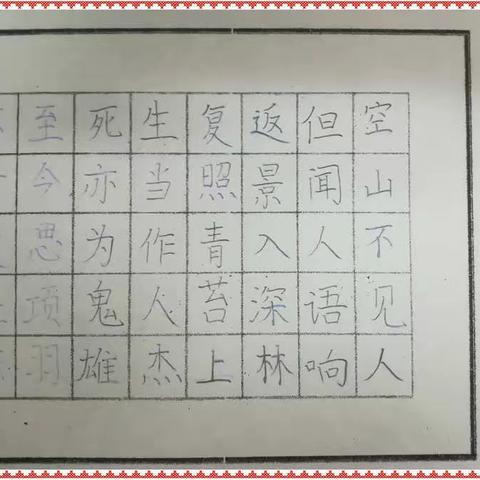 空山不见人
但闻人语响
返景入深林
复照青苔上
生当作人杰
死亦为鬼雄
至今思项羽